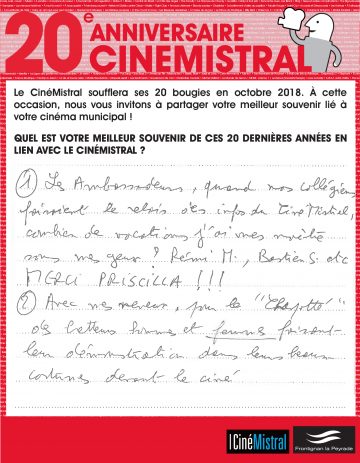 20e ANNIVERSAIRE
CINEMISTRAL
Le CinéMistral soufflera ses 20 bougies en octobre 2018. À cette
occasion, nous vous invitons à partager votre meilleur souvenir lié à
votre cinéma municipal !
QUEL EST VOTRE MEILLEUR SOUVENIR DE CES 20 DERNIÈRES ANNÉES EN
LIEN AVEC LE CINÉMISTRAL ?
① Les Ambassadeurs, quand nos collégiens
faisaient le relais des infos du CinéMistral,
combien de vocations j'ai vues naître
sous mes yeux ? Rémi M., Bastien S. etc
MERCI PRISCILLA !!!
② Avec mes neveux, pour le
des lutteurs hommes et femmes faisant
leur démonstration dans leurs beaux
costumes devant le ciné
CinéMistral
Frontignan la Peyrade